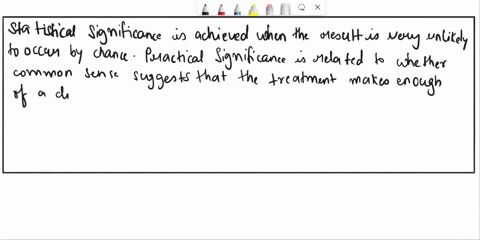 Statistical Significance is achieved when the result is very unlikely
to occur by chance. Practical Significance is related to whether
common sense suggests that the treatment makes enough
of a